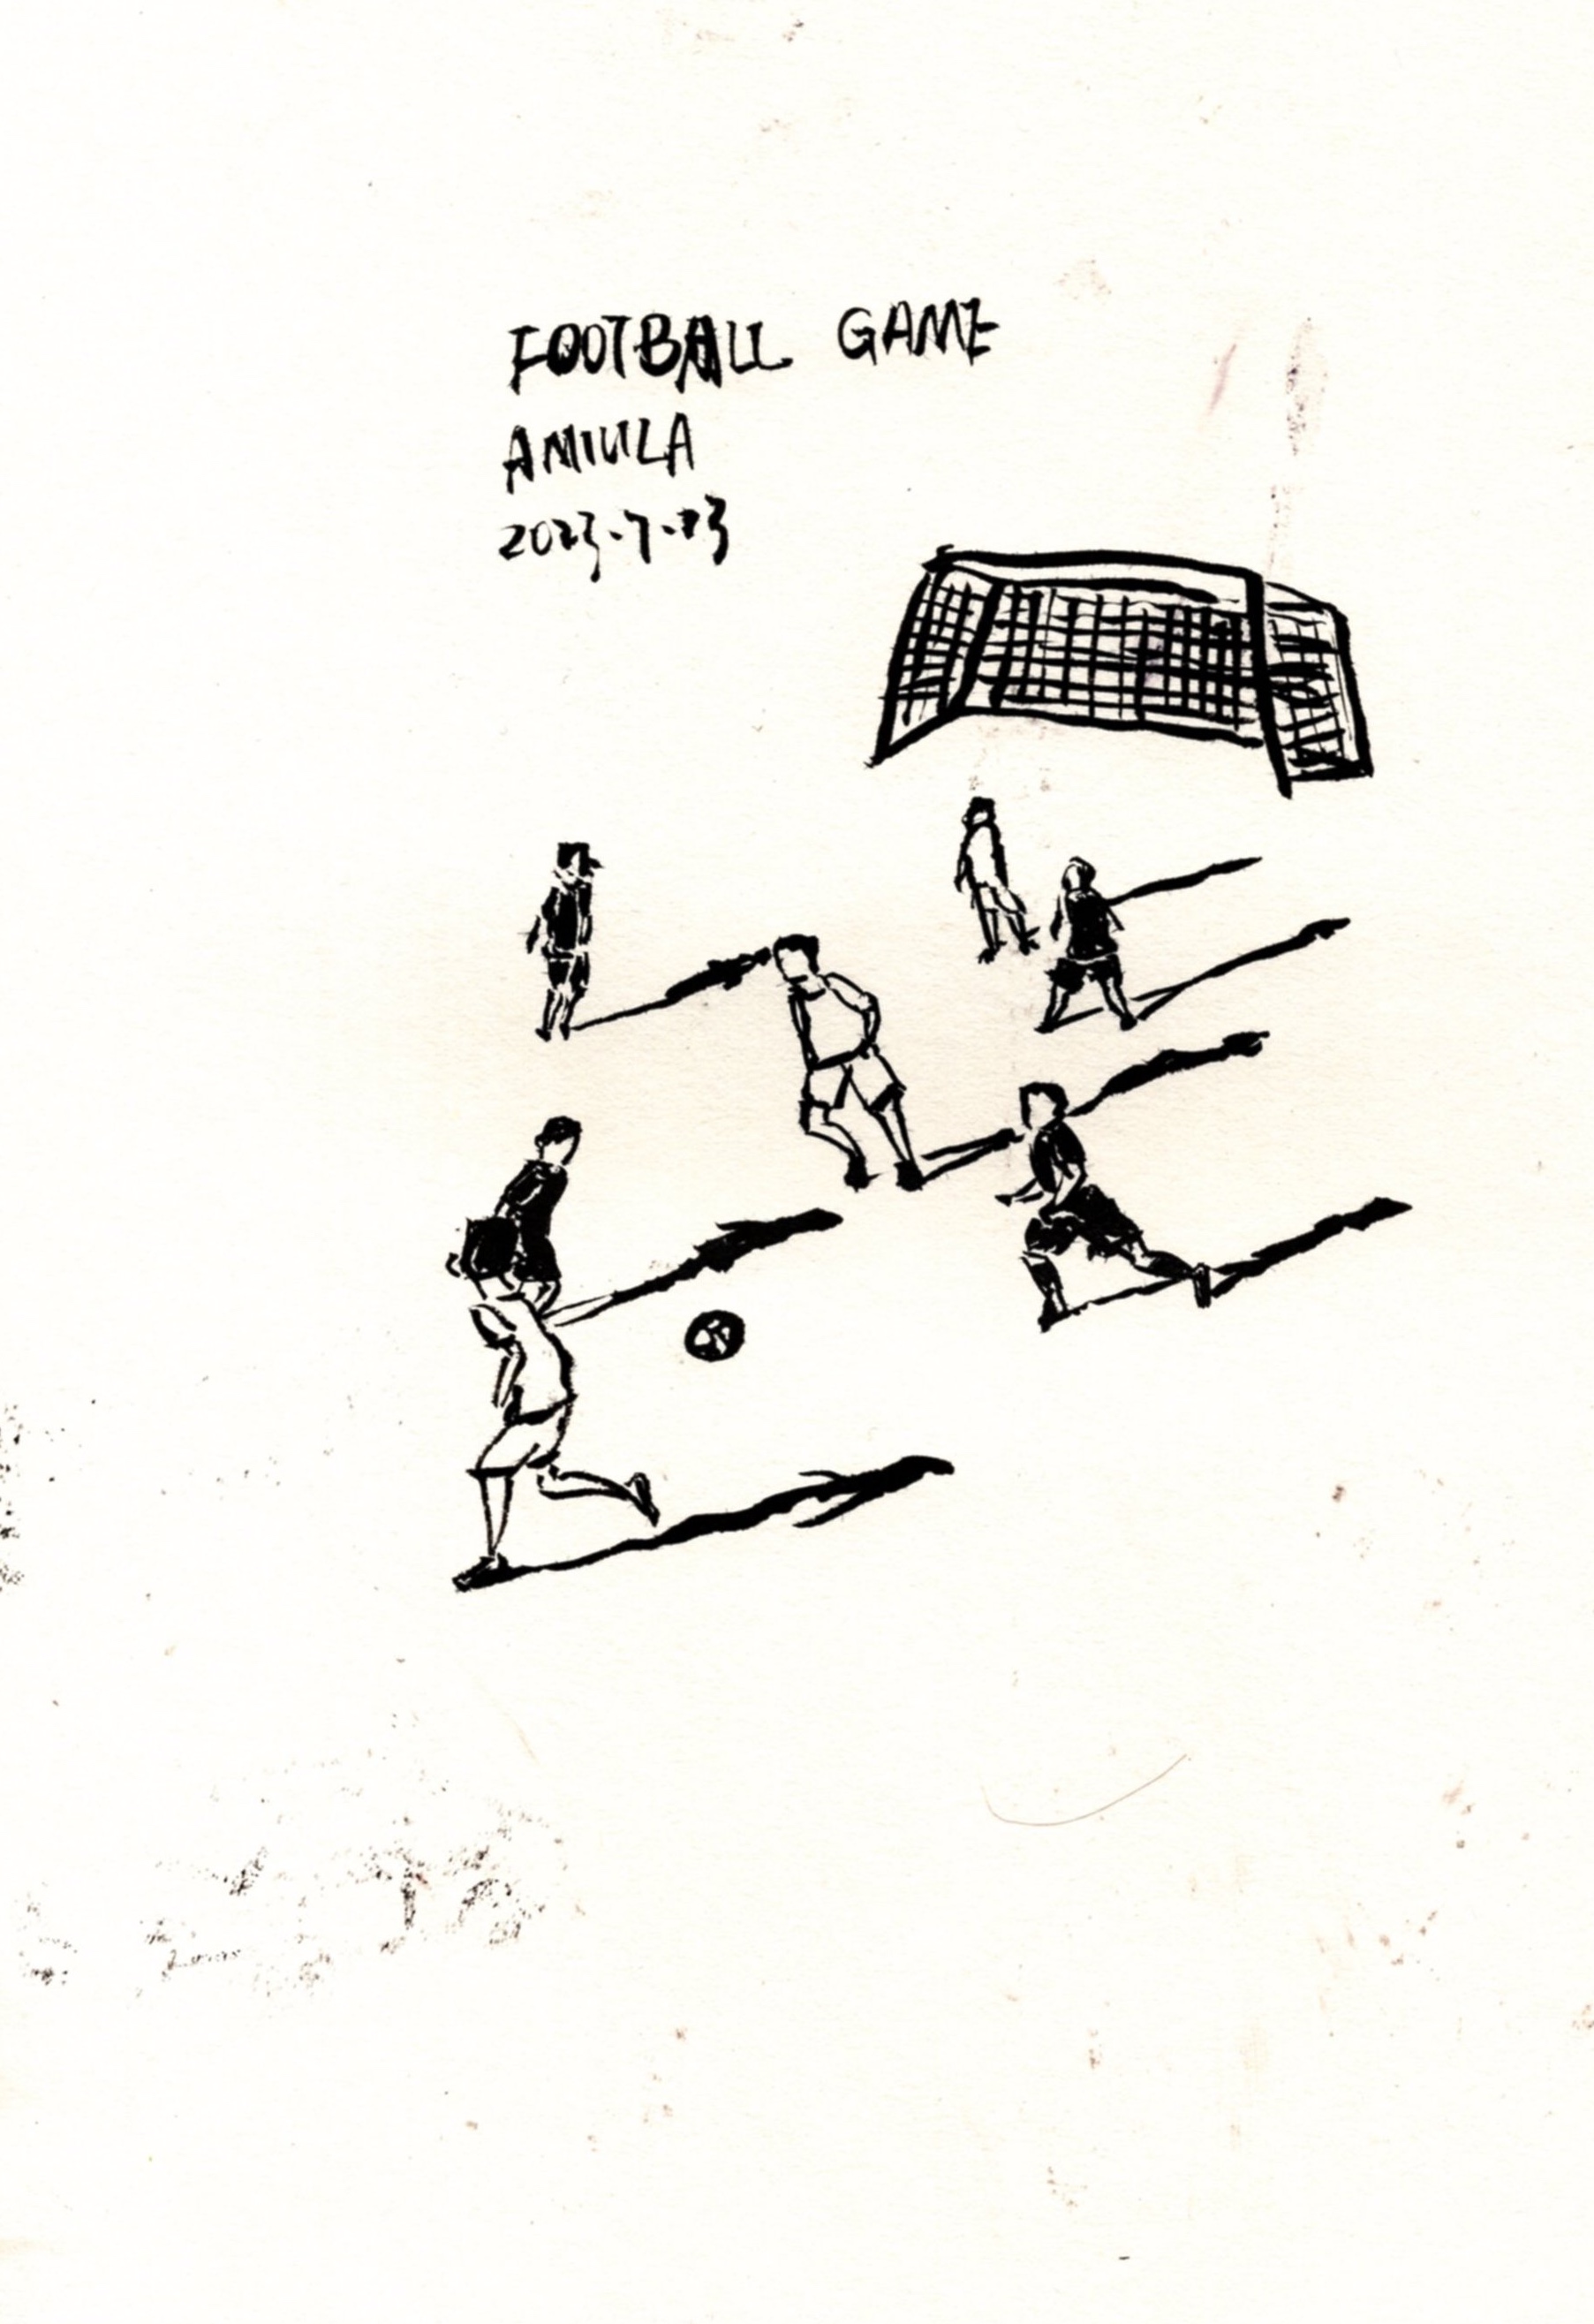 FOOTBALL GAME
AMIULA
2023.7.03